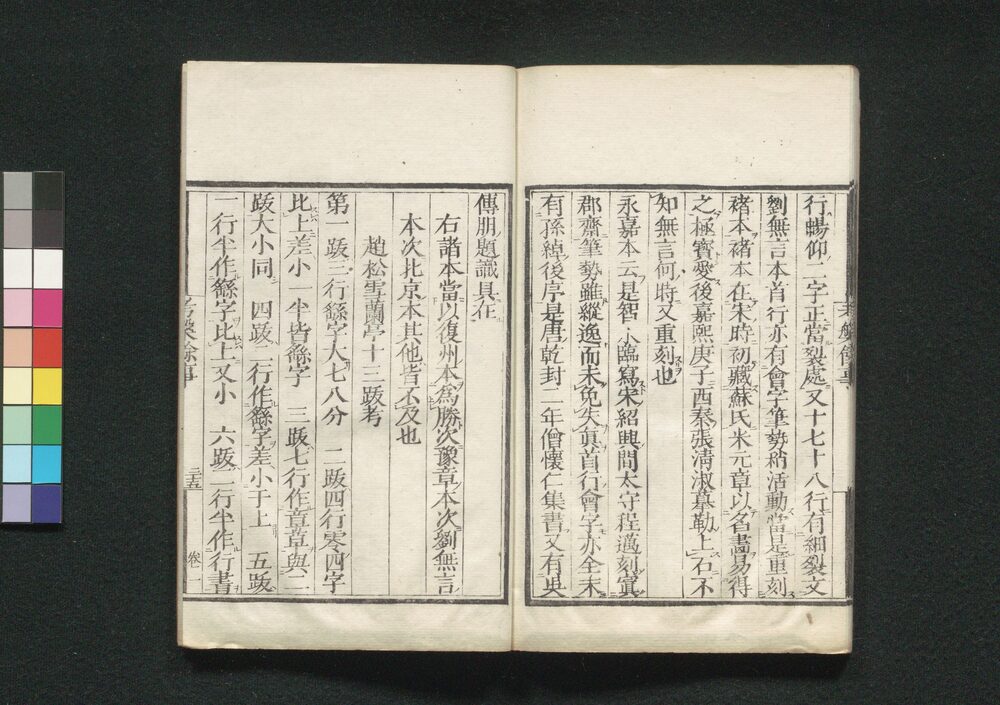 行暢仰二字正當裂處又十七十八行有細裂文
劉無言本首行亦有會字筆勢稍活動當是重刻
褚本褚本在宋時初藏蘇氏米元章以名畫易得
之極寶愛後嘉熙庚子西秦張淸淑摹勒上石不
知無言何時又重刻也
永嘉本云是智永臨寫宋紹興間太守程邁刻寘
郡齋筆勢雖縱逸而未免失眞首行會字亦全末
有孫綽後序是唐乾封二年僧懷仁集書又有吳
傳朋題識具在
右諸本當以復州本爲勝次豫章本次劉無言
本次北京本其他皆不及也
趙松雪蘭亭十三跋考
第一跋三行餘字大七八分 二跋四行零四字
比上差小一半皆餘字 三跋七行作章草與二
跋大小同 四跋二行作餘字差小于上 五跋
一行半作餘字比上又小 六跋二行半作行書
考槃餘事
二十五
卷一